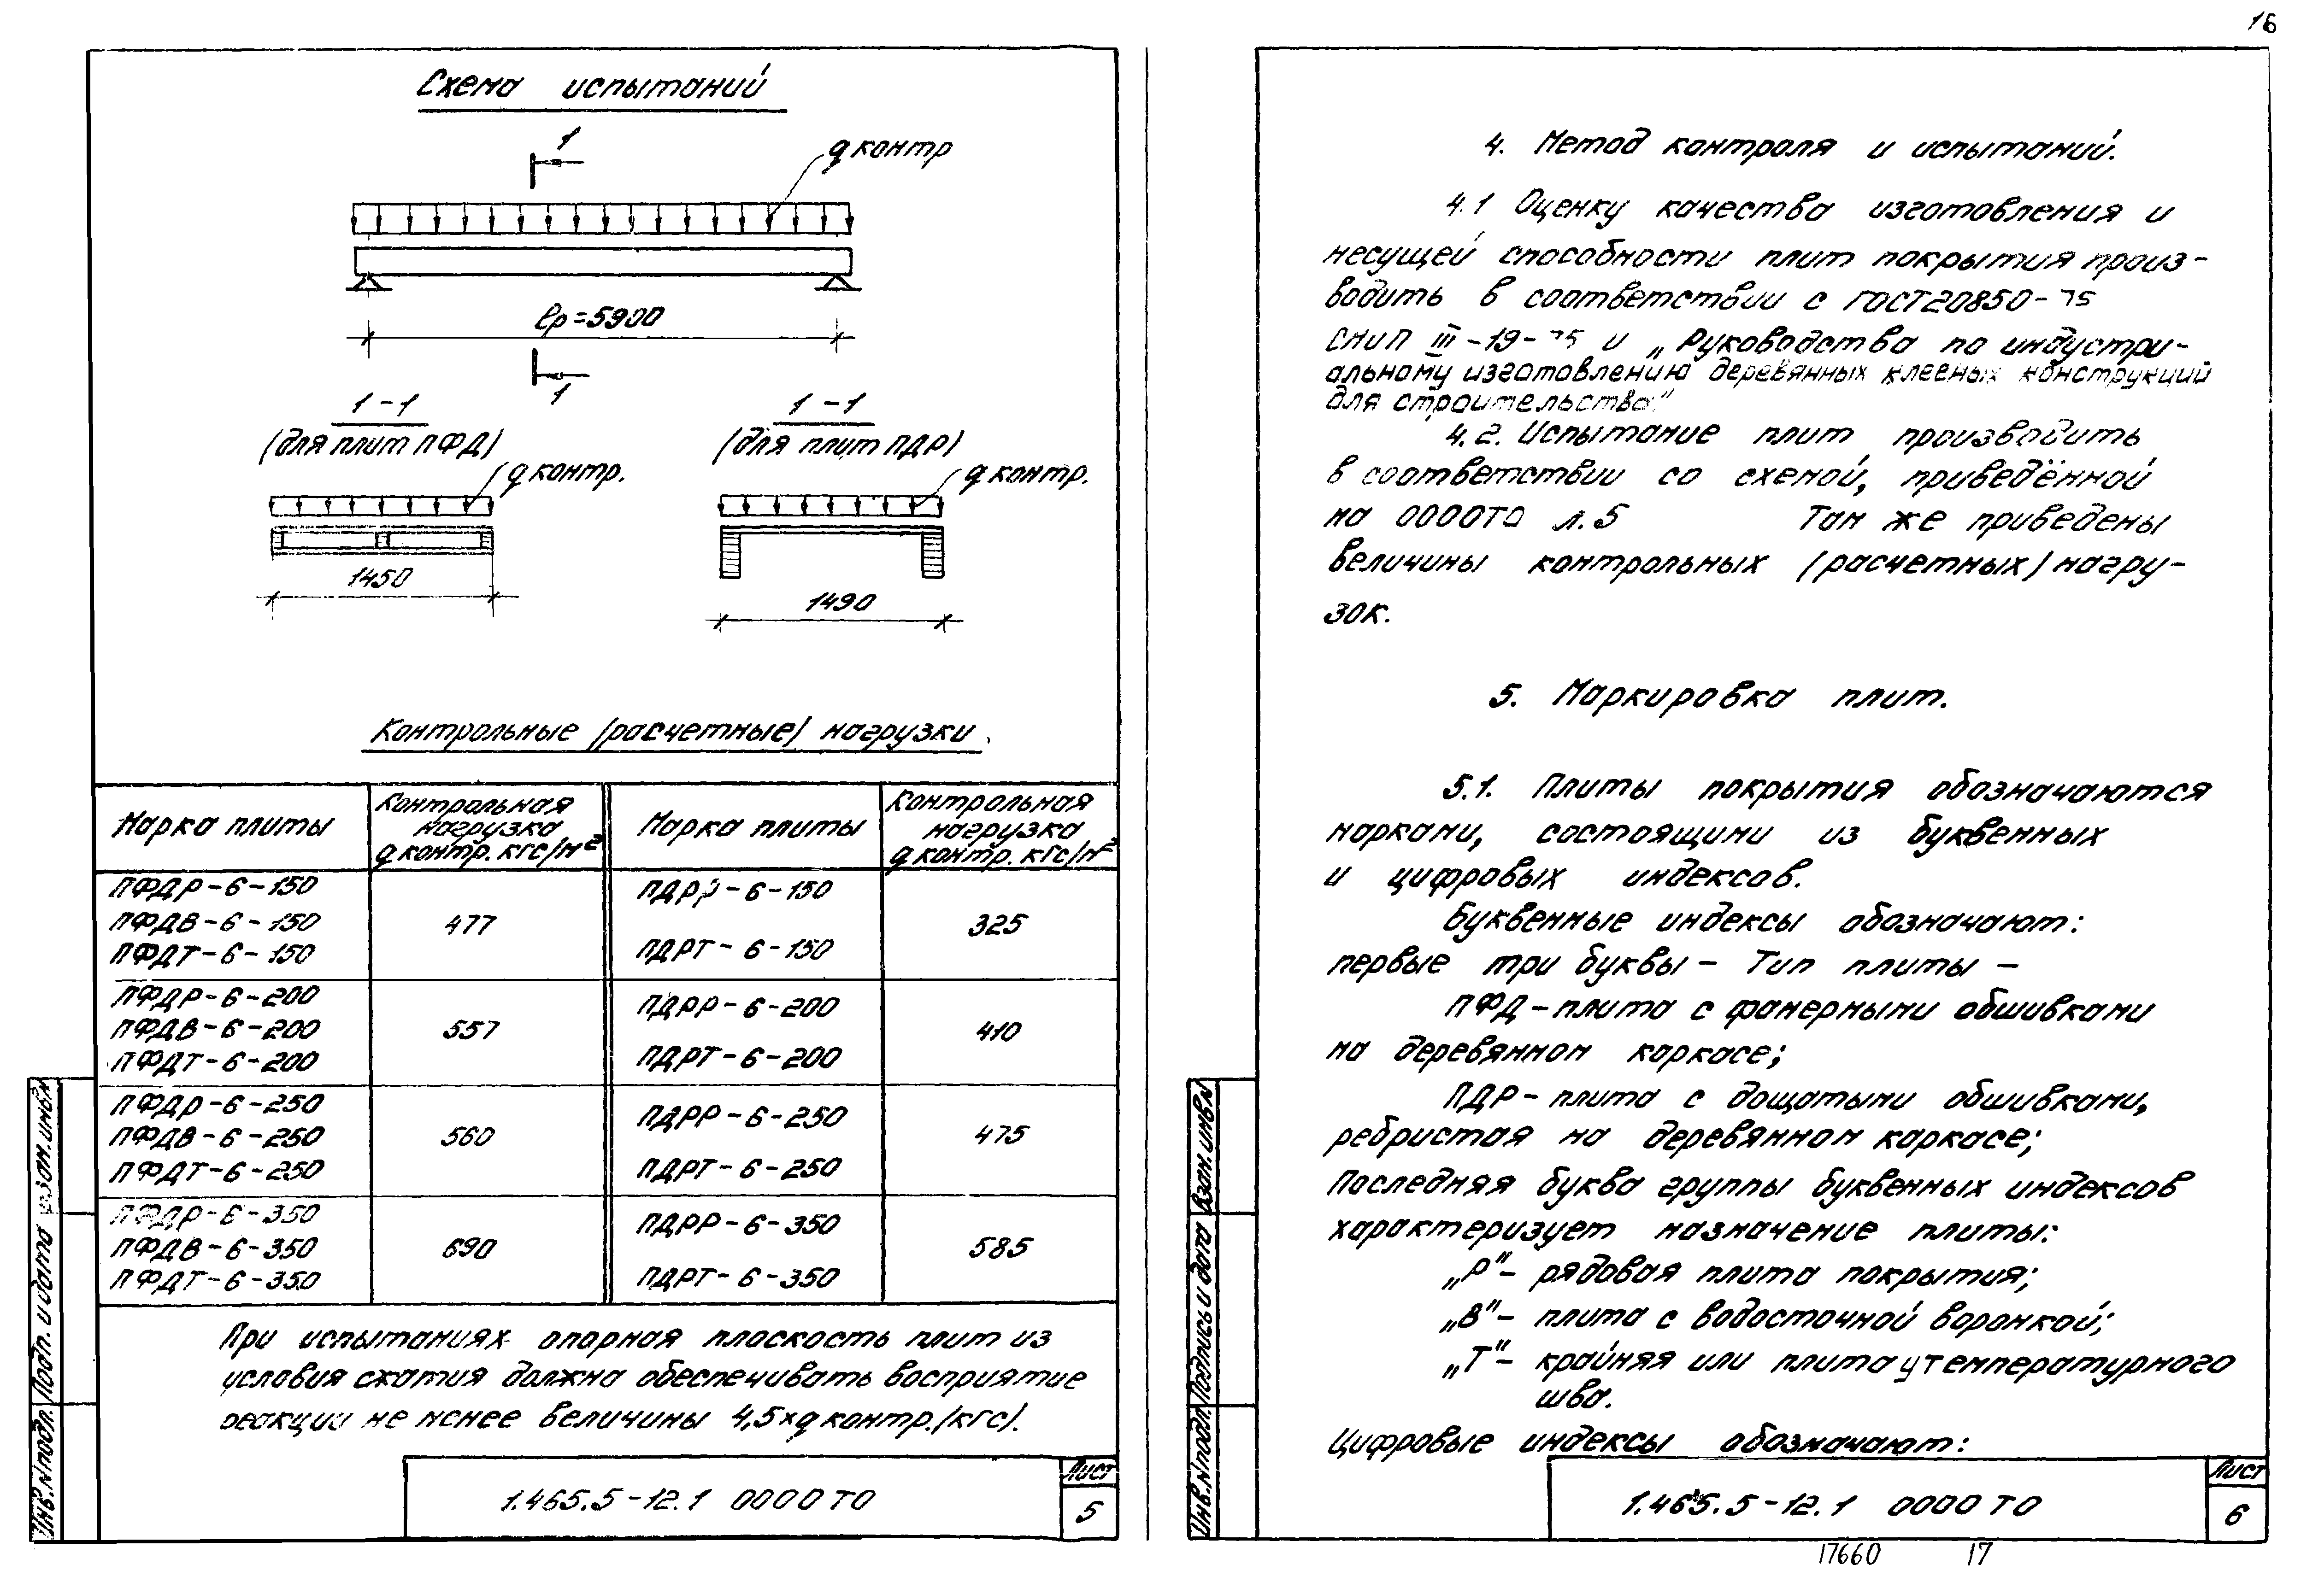 16
Схема испытаний
1
q контр
ℓр=5900
1
1-1
(для плит ПФД)
q контр.
1450
1-1
(для плит ПДР)
q контр.
1490
Контрольные (расчетные) нагрузки.
Марка плиты
Контрольная
нагрузка
q контр. кгс/м²
Марка плиты
Контрольная
нагрузка
q контр. кгс/м²
ПФДР-6-150
ПФДВ-6-150
ПФДТ-6-150
477
ПДРР-6-150
ПДРТ-6-150
325
ПФДР-6-200
ПФДВ-6-200
ПФДТ-6-200
557
ПДРР-6-200
ПДРТ-6-200
410
ПФДР-6-250
ПФДВ-6-250
ПФДТ-6-250
560
ПДРР-6-250
ПДРТ-6-250
475
ПФДР-6-350
ПФДВ-6-350
ПФДТ-6-350
690
ПДРР-6-350
ПДРТ-6-350
585
При испытаниях опорная плоскость плит из
условия сжатия должна обеспечивать восприятие
реакции не менее величины 4,5×q контр.(кгс).
1.465.5-12.1 0000 ТО
Лист
5
Инв.N подл.
Подп. и дата
Взам. инв.N
4. Метод контроля и испытаний.
4.1 Оценку качества изготовления и
несущей способности плит покрытия произ-
водить в соответствии с ГОСТ 20850-75
СНиП III-19-75 и „Руководства по индустри-
альному изготовлению деревянных клееных конструкций
для строительства"
4.2. Испытание плит производить
в соответствии со схемой, приведённой
на 0000ТО л.5 Там же приведены
величины контрольных (расчетных) нагру-
зок.
5. Маркировка плит.
5.1. Плиты покрытия обозначаются
марками, состоящими из буквенных
и цифровых индексов.
Буквенные индексы обозначают:
первые три буквы - Тип плиты -
ПФД-плита с фанерными обшивками
на деревянном каркасе;
ПДР- плита с дощатыми обшивками,
ребристая на деревянном каркасе;
Последняя буква группы буквенных индексов
характеризует назначение плиты:
„Р"- рядовая плита покрытия;
„В"- плита с водосточной воронкой;
„Т"- крайняя или плита у температурного
шва.
Цифровые индексы обозначают:
1.465.5-12.1 0000 ТО
Лист
6
Инв.N подл.
Подпись и дата
Взам. инв.N
17660 17